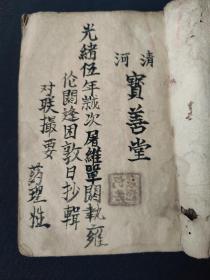 清河
寶善堂
光緒伍年歲次屠維單閼執雍
伦閼逢困敦日抄輯
对联撮要
药理性